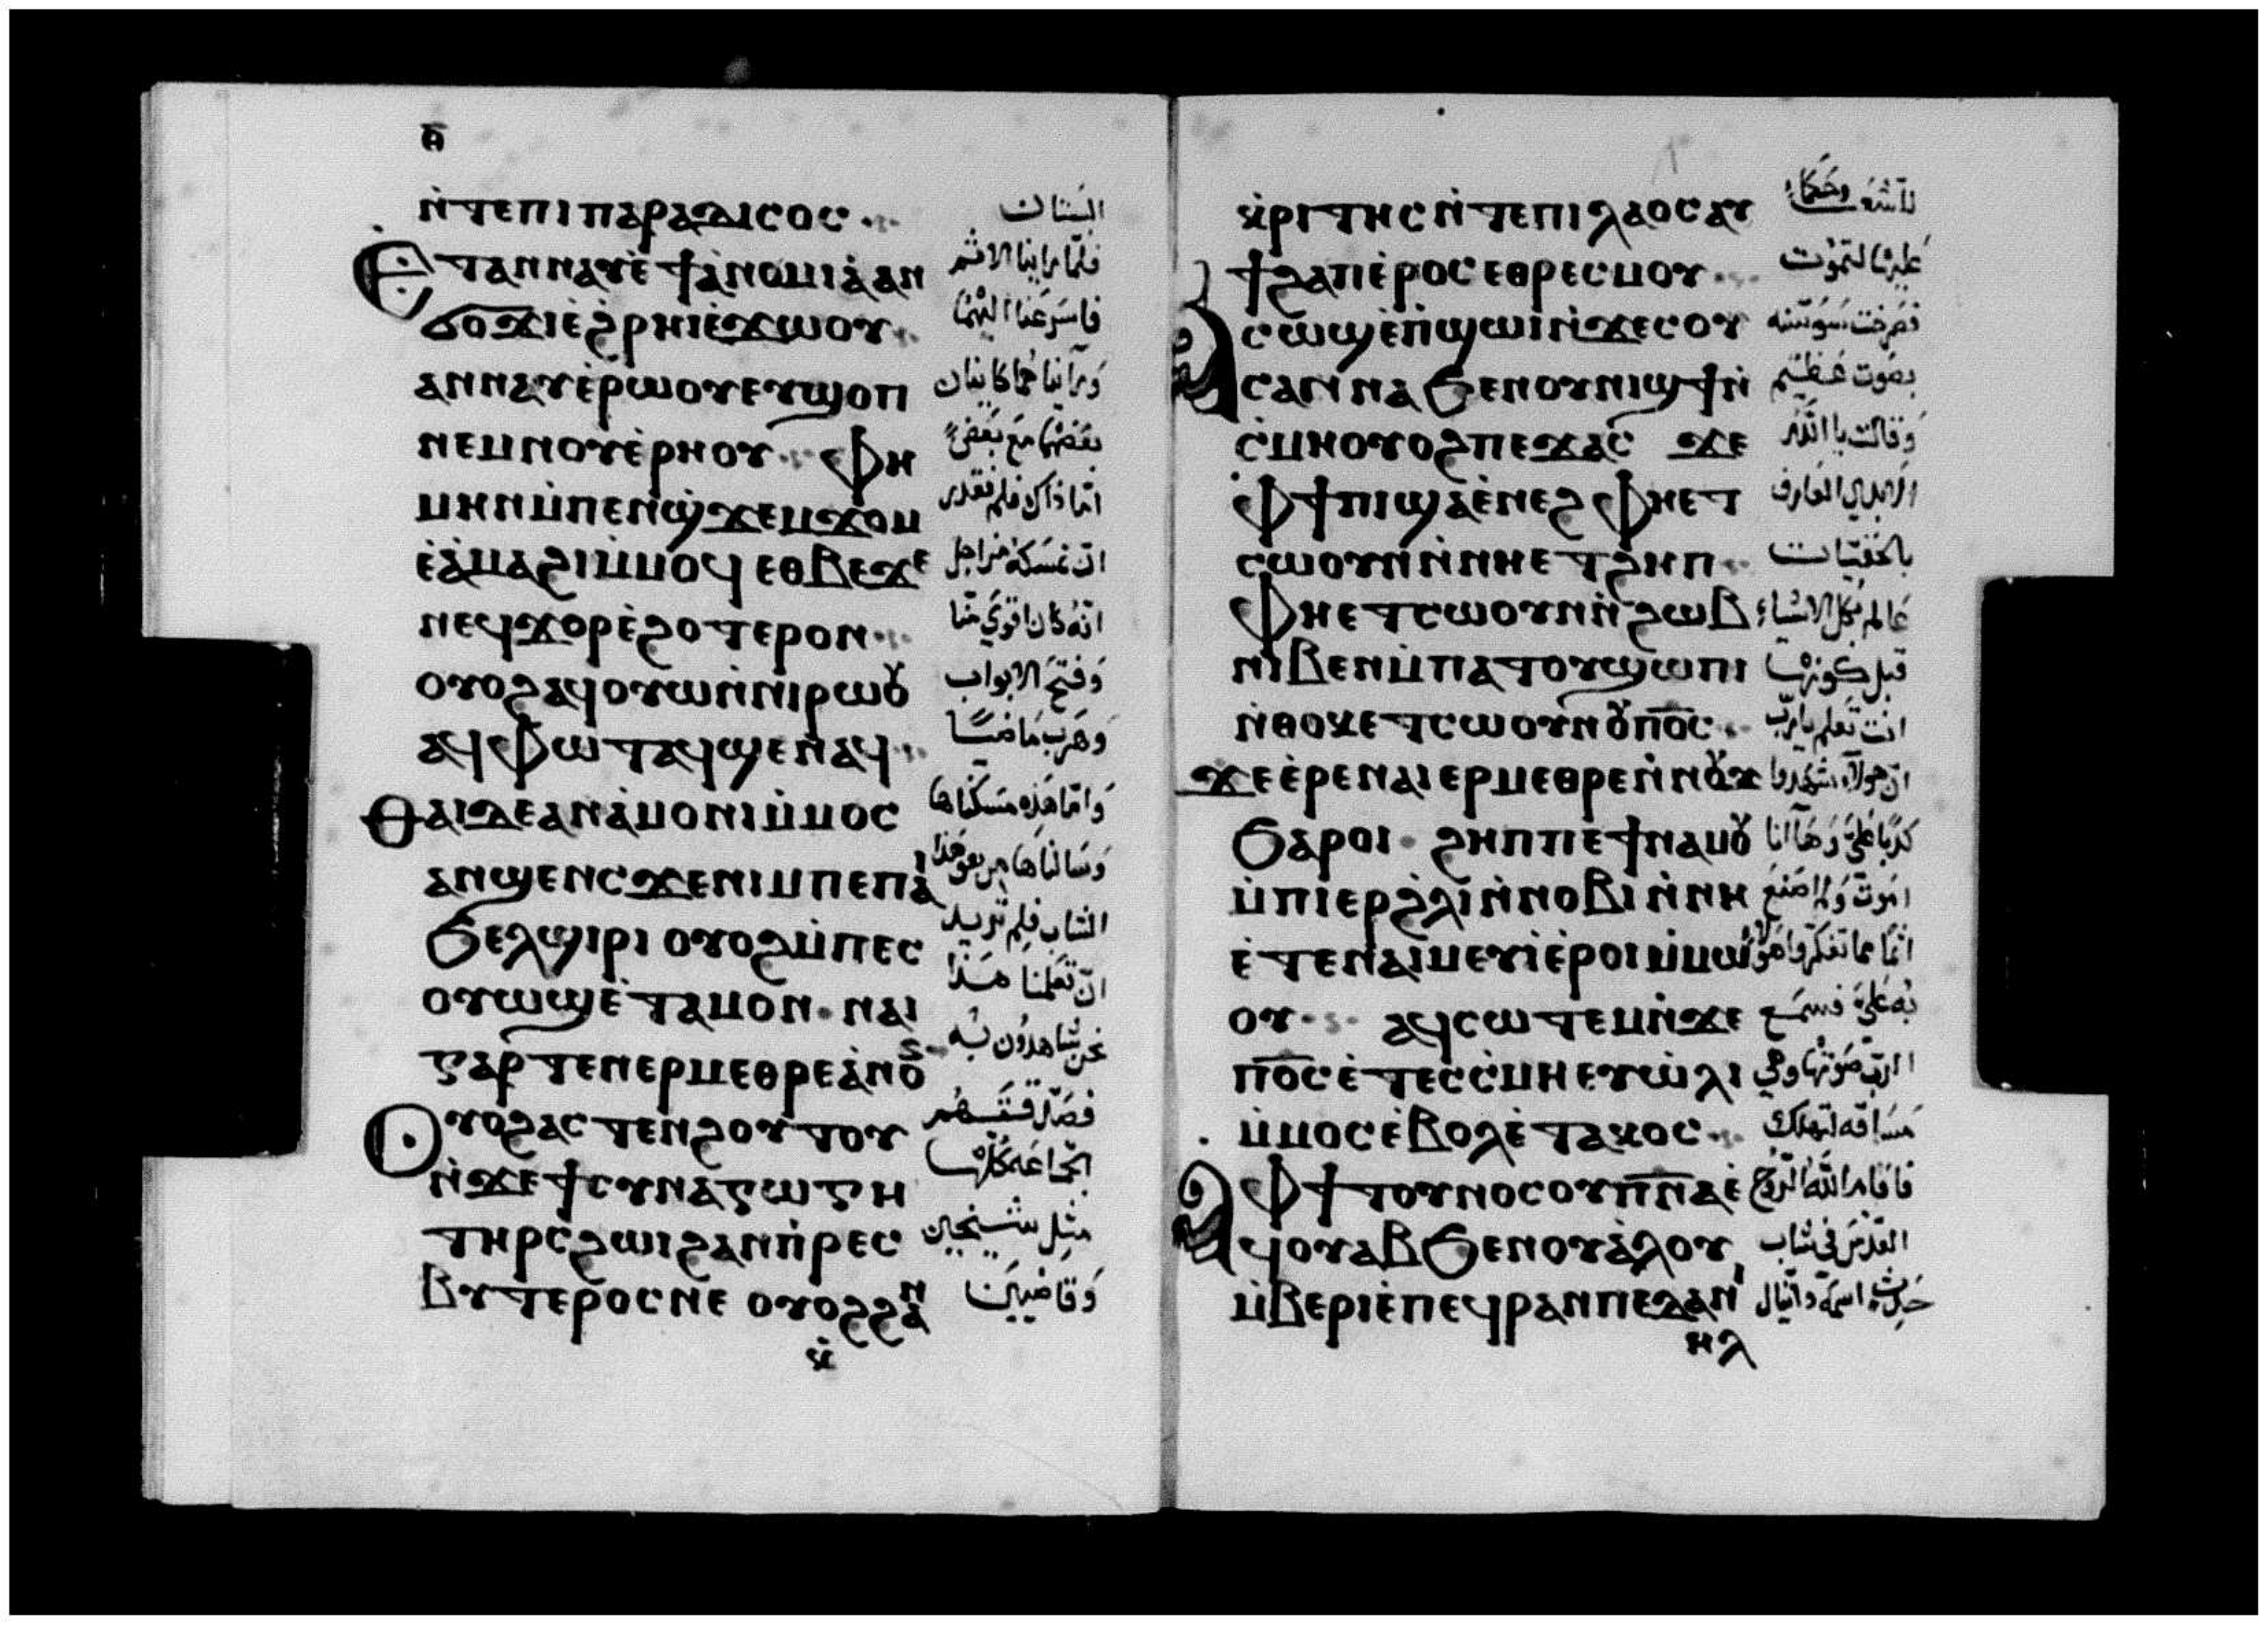 ⲑ̄
ⲛ̀ⲧⲉⲡⲓⲡⲁⲣⲁⲇⲓⲥⲟⲥ
البستان
Ⲉⲧⲁⲛⲛⲁⲩⲉ̀ϯⲁ̀ⲛⲟⲙⲓⲁ̀ⲁⲛ
فلمّا راينا الاثم
ϭⲟϫⲓⲉ̀ϩⲣⲏⲓⲉ̀ϫⲱⲟⲩ
فاسرعنا اليهما
ⲁⲛⲛⲁⲩⲉ̀ⲣⲱⲟⲩⲉⲩϣⲟⲡ
وراينا هما كاينان
ⲛⲉⲙⲛⲟⲩⲉ̀ⲣⲏⲟⲩ ⲫⲏ
بعضهما مع بعض
ⲙⲉⲛⲙ̀ⲡⲉⲛϣ̀ϫⲉⲙϫⲟⲙ
امّا ذاك فلم نقدر
ⲉ̀ⲁ̀ⲙⲁϩⲓⲙ̀ⲙⲟϥ ⲉⲑⲃⲉϫⲉ
ان نمسكه من اجل
ⲛⲉϥϫⲟⲣⲉ̀ϩⲟⲧⲉⲣⲟⲛ
انّه كان اقوي منّا
ⲟⲩⲟϩⲁϥⲟⲩⲱⲛ̀ⲛⲓⲣⲱⲟⲩ
وفتح الابواب
ⲁϥⲫⲱⲧⲁϥϣⲉⲛⲁϥ
وهرب ماضيًا
Ⲑⲁⲓⲇⲉⲁⲛⲁ̀ⲙⲟⲛⲓⲙ̀ⲙⲟⲥ
وامّا هذه مسكناها
ⲁⲛϣⲉⲛⲥϫⲉⲛⲓⲙⲡⲉⲡⲁⲓ
وسالناها من هو هذا
ϧⲉⲗϣⲓⲣⲓ ⲟⲩⲟϩⲙ̀ⲡⲉⲥ
الشاب فلم تريد
ⲟⲩⲱϣⲉ̀ⲧⲁⲙⲟⲛ ⲛⲁⲓ
ان تعلمنا هذا
ⲅⲁⲣⲧⲉⲛⲉⲣⲙⲉⲑⲣⲉⲁ̀ⲛⲟⲛ
نحن شاهدون به
Ⲟⲩⲟϩⲁⲥⲧⲉⲛϩⲟⲩⲧⲟⲩ
فصدّقتهم
ⲛ̀ϫⲉϯⲥⲩⲛⲁⲅⲱⲅⲏ
الجماعه كلّها
ⲧⲏⲣⲥϩⲱⲓϩⲁⲛⲡ̀ⲣⲉⲥ
مثل شيخين
ⲃⲩⲧⲉⲣⲟⲥⲛⲉ ⲟⲩⲟϩϩⲁⲛ
وقاضيين
ⲕ̀
ⲕ̀ⲣⲓⲧⲏⲥⲛ̀ⲧⲉⲡⲓⲗⲁⲟⲥⲁⲩ
وحكما للشعب
ϯϩⲁⲡⲉ̀ⲣⲟⲥⲉⲑⲣⲉⲥⲙⲟⲩ
عليها لتموت
Ⲁⲥⲱϣⲉ̀ⲡ̀ϣⲱⲓⲛ̀ϫⲉⲥⲟⲩ
فصرخت سوسنه
ⲥⲁⲛⲛⲁϧⲉⲛⲟⲩⲛⲓϣϯⲛ̀
بصوت عظيم
ⲥ̀ⲙⲏⲟⲩⲟϩⲡⲉϫⲁⲥ ϫⲉ
وقالت يا اللّه
ⲫϯⲡⲓϣⲁⲉ̀ⲛⲉϩ ⲫⲏⲉⲧ
الابدي العارف
ⲥⲱⲟⲩⲛⲛ̀ⲛⲏⲉⲧϩⲏⲡ
بالخفيّات
ⲫⲏⲉⲧⲥⲱⲟⲩⲛⲛ̀ϩⲱⲃ
عالم بكل الاشياء
ⲛⲓⲃⲉⲛⲙ̀ⲡⲁⲧⲟⲩϣⲱⲡⲓ
قبل كونها
ⲛ̀ⲑⲟⲕⲉⲧⲥⲱⲟⲩⲛⲟⲩⲡⲟ̅ⲥ̅
انت تعلم ياربّ
ϫⲉⲉ̀ⲣⲉⲛⲁⲓⲉⲣⲙⲉⲑⲣⲉⲛ̀ⲛⲟⲩϫ
ان هولاء شهدوا
ϧⲁⲣⲟⲓ ϩⲏⲡⲡⲉϯⲛⲁⲙⲟⲩ
كذبا عليّ وها انا
ⲙ̀ⲡⲓⲉⲣϩ̀ⲗⲓⲛ̀ⲛⲟⲃⲓⲛ̀ⲛⲏ
اموت ولم اصنع
ⲉ̀ⲧⲉⲛⲁⲓⲙⲉⲩⲓⲉ̀ⲣⲟⲓⲙ̀ⲙⲱ
ⲟⲩ ⲁϥⲥⲱⲧⲉⲙⲛ̀ϫⲉ
به عليّ فسمع
ⲡⲟ̅ⲥ̅ⲉ̀ⲧⲉⲥⲥ̀ⲙⲏⲉⲩⲱ̀ⲗⲓ
الربّ صوتها وهي
ⲙ̀ⲙⲟⲥⲉ̀ⲃⲟⲗⲉ̀ⲧⲁⲕⲟⲥ
مساقه لتهلك
Ⲁⲫϯⲧⲟⲩⲛⲟⲥⲟⲩⲡ̅ⲛ̅ⲁⲉ̀
فاقام اللّه الروح
ϥⲟⲩⲁⲃϧⲉⲛⲟⲩⲁ̀ⲗⲟⲩ
القدس في شاب
ⲙ̀ⲃⲉⲣⲓⲉ̀ⲡⲉϥⲣⲁⲛⲡⲉⲇⲁⲛⲓ
حدث اسمه دانيال
ⲏⲗ